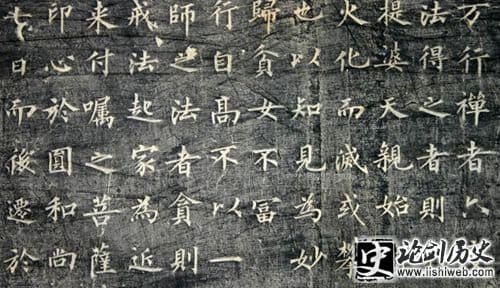 万行禪者六
法得之者則
提婆天親始
火化而滅或
也以知見為妙
歸貧女不冨
行自高不以一
師之法者貪則
戒法起家為近
来付囑之菩薩
印心於圓和尚
七日而後遷於
史 论剑历史
www.lishiweb.com